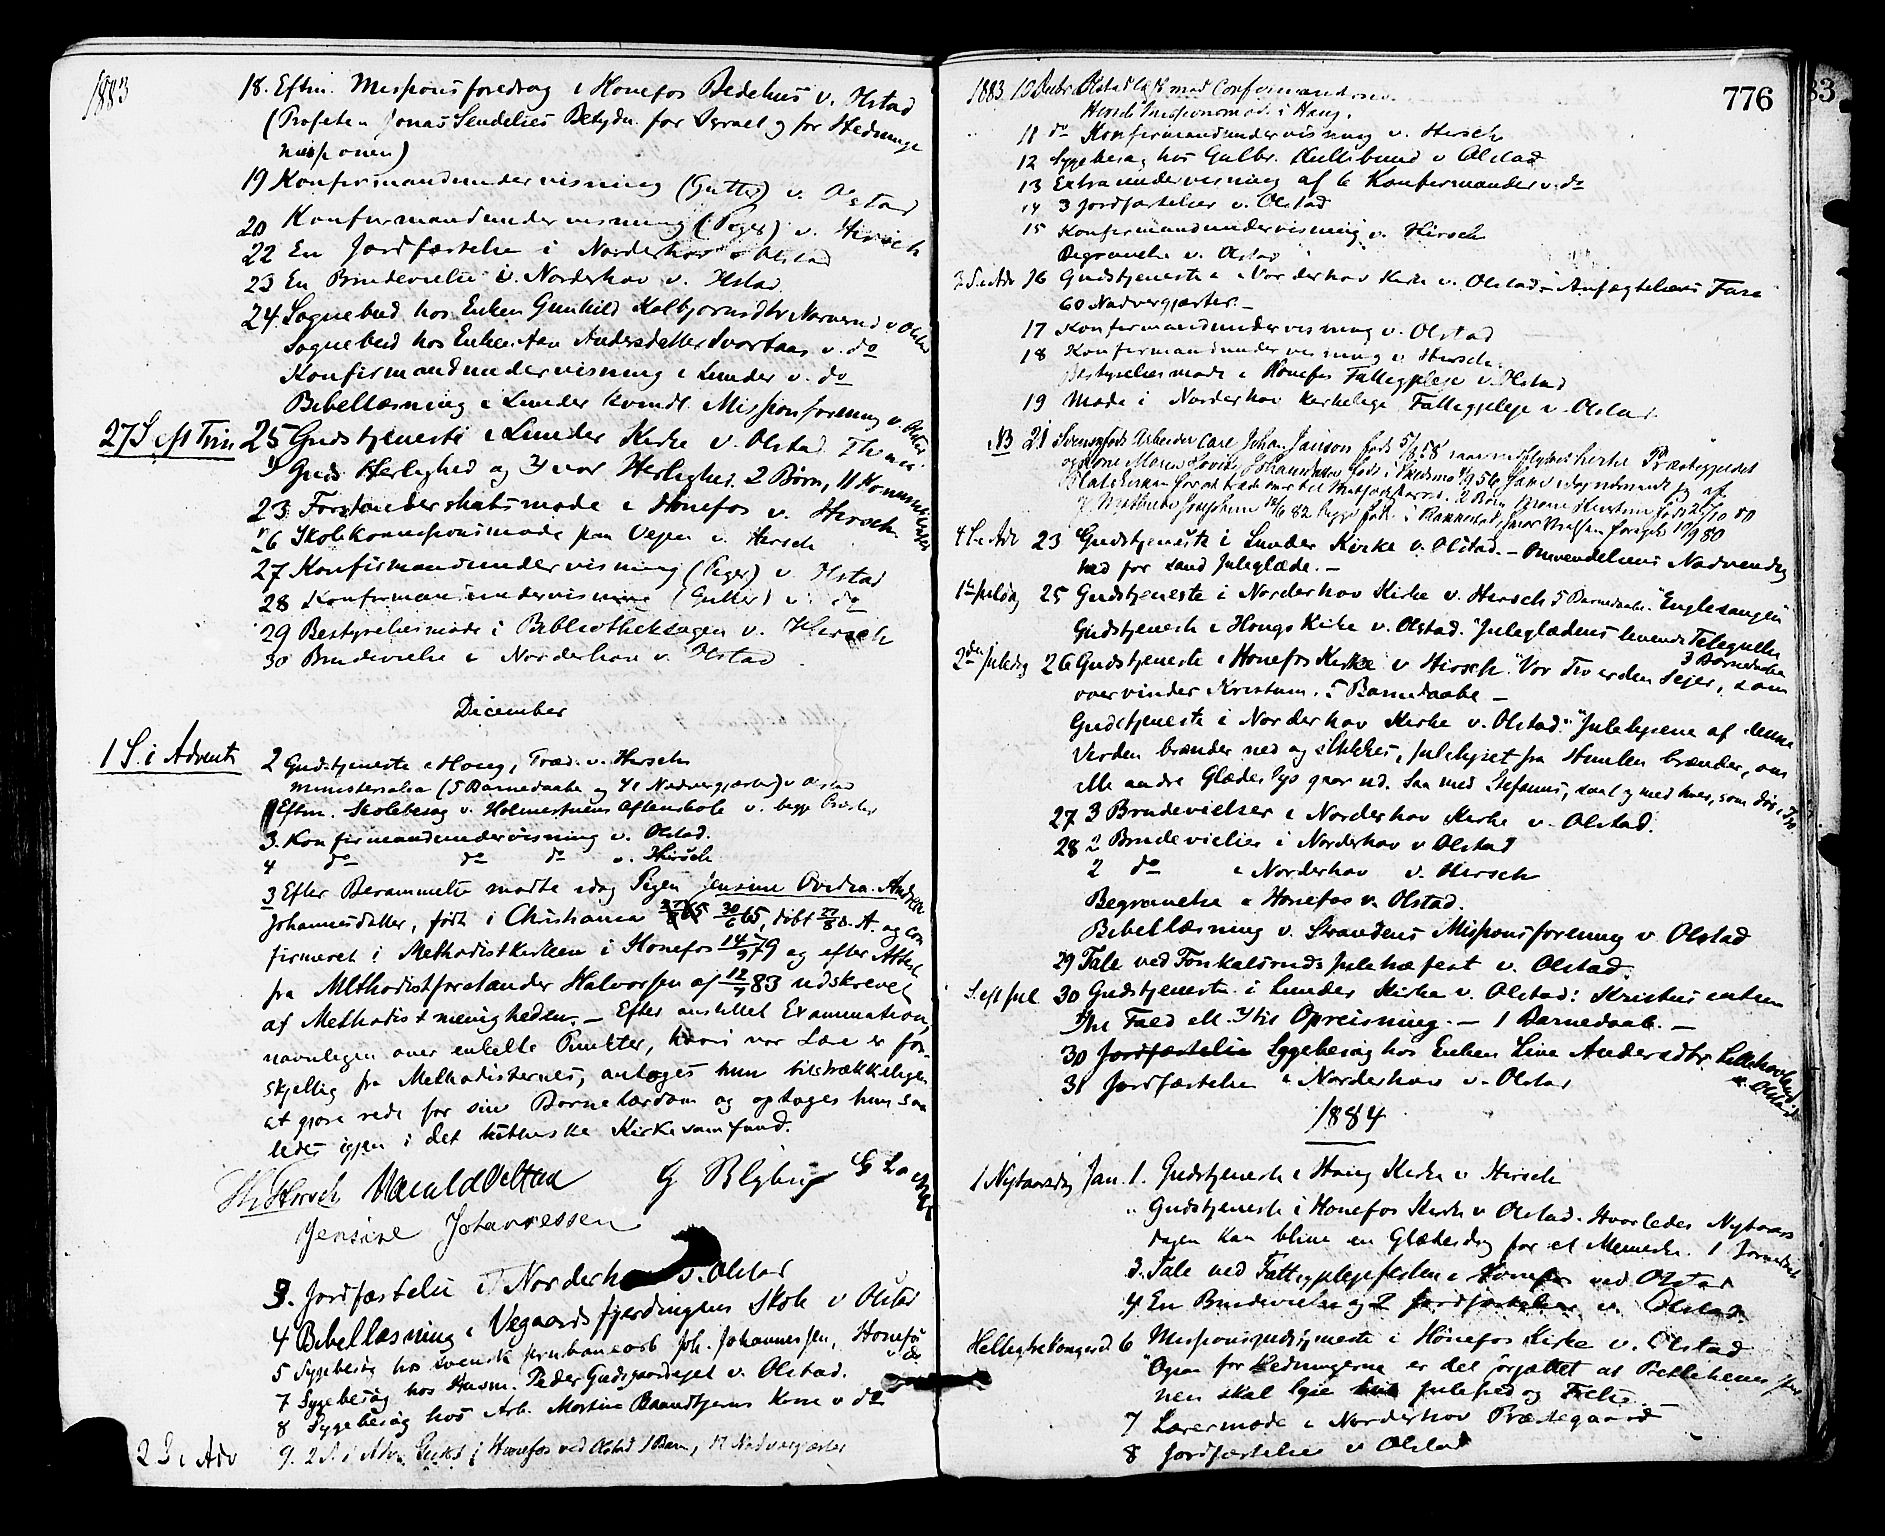 1883
18. Eftm. Missionsforedrag i Hønefos Bedehus v. Olstad
(Profeten Jonas Sendelses Betydn. for Israel og for Hedninge
missionen)
19 Konfirmandundervisning (Gutter) v. Olstad
20 Konfirmandundervisning (Piger) v. Hirsch
22 En Jordfæstelse i Norderhov v Olstad
23 En Brudevielse i Norderhov v. Olstad
24 Sognebud hos Enken Gunhild Kolbjørnsdtr v Olstad
Sognebud hos Enken Andersdatter Svartaas v. do
Konfirmandundervisning i Lunder v. do
Bibellæsning i Lunder Kvindl. Missionsforening v. Olstad
27 S. eft Trin 25 Gudstjeneste i Lunder Kirke v. Olstad
Guds Herlighed og vor Herlighed. 2 Børn, 11 Kommunikanter
23 Forstanderskabsmøde i Hønefos v. Hirsch
26 Skolekommissionsmøde paa Vejen v. Hirsch
27 Konfirmandundervisning (Piger) v. Olstad
28 Konfirmandundervisning (Gutter) v. do
29 Bestyrelsesmøde i Bibliotheksagen v. Hirsch
30 Brudevielse i Norderhov v. Olstad
December
1 S. i Advent 2 Gudstjeneste i Haug, Præd. v. Hirsch
Ministerialia (5 Barnedaabe og 41 Nadvergjæster) v Olstad
Eftm. Skolebesøg v. Aftenskole v. begge Prester
3 Konfirmandundervisning v. Olstad.
4 do do do v. Hirsch
3 Efter Berammelse mødte idag Pigen Jensine Andrea
Johannesdatter, født i Christiania 30/6 65, døbt 27/8 s. A. og con
firmeret i Methodistkirken i Hønefos 14/9 79 og efter Attest
fra Methodistforstander Halvorsen af 12/9 83 udskrevet
af Methodistmenigheden. – Efter anstillet Examination,
navnlegen over enkelte Punkter, hvori vor Lære er for-
skjellig fra Methodisternes, antoges hun tilstrækkeligen
at gjøre rede for sin Børnelærdom og optoges hun saa
ledes igjen i det lutherske Kirkesamfund.
Th Hirsch Harald Olstad G Blyberg
Jensine Johannessen
3. Jordfæstelse i Norderhov v. Olstad
4 Bibellæsning i Vegaardsfjerdingens Skole v Olstad
5 Sygebesøg hos svensk Joh. Johannessen, Hønefos v do
7 Sygebesøg hos Husm. Peder v. Olstad.
8 Sygebesøg hos Arb. Martin Kone v do
2 S i Adv 9. 2 S. i Adv. Gudst i Hønefos ved Olstad 1 Barn, 17 Nadvergjæster
776
83
1883 10 Decbr. Olstad med Confirmanderne.
Hirsch Missionsmøde i Haug.
11 do Konfirmandundervisning v. Hirsch
12 Sygebesøg hos Gulbr. v Olstad
13 Extraundervisning af 6 Konfirmander v. do
14 3 Jordfæstelser v. Olstad
15 Konfirmandundervisning v. Hirsch
Begravelse v. Olstad
3 S i Adv 16 Gudstjeneste i Norderhov Kirke v. Olstad – Anfægtelsens Fare
60 Nadvergjæster. –
17 Konfirmandundervisning v. Olstad
18 Konfirmandundervisning v Hirsch
Bestyrelsesmøde i Hønefos Fattigpleje v. Olstad
19 Møde i Norderhov kirkelige Fattigpleje v. Olstad.
NB 21 Svenskfødt Arbeider Carl Johan Janson født 58
4 S i Adv 23 Gudstjeneste i Lunder Kirke v. Olstad. – Omvendelsens Nødvendig
hed for sand Juleglæde. –
1ste Juledag 25 Gudstjeneste i Norderhov Kirke v. Hirsch 5 Barnedaabe. "Englesangen"
Gudstjeneste i Haugs Kirke v. Olstad. "Juleglædens 3 Barnedaabe
2den Juledag 26 Gudstjeneste i Hønefos Kirke v Hirsch. "Vor Tro er den Sejer, som
overvinder Kristum. 5 Barnedaabe –
Gudstjeneste i Norderhov Kirke v. Olstad. "Julelysene af denne
Verden brænder ned og slukkes, Julelyset fra Himlen brænder, om
alle andre Glædes lys gaar ud. Saa med Stefanus, saa og med hver, som dør i Tro
27 3 Brudevielser i Norderhov Kirke v. Olstad.
28 2 Brudevielser i Norderhov v Olstad
2 do i Norderhov v. Hirsch
Begravelse i Hønefos v. Olstad.
Bibellæsning v. Strandens Missionsforening v. Olstad
29 Tale ved Juletræfest v. Olstad.
S. eft Jul 30 Gudstjeneste i Lunder Kirke v. Olstad: Kristus enten
til Fald ell. til Oprejsning. – 1 Barnedaab. –
30 Jordfæstelse Sygebesøg hos Enken Live Andersdtr. v. Olstad
31 Jordfæstelse i Norderhov v. Olstad
1884
1 Nytaarsdag Jan. 1. Gudstjeneste i Haug Kirke v Hirsch
" Gudstjeneste i Hønefos Kirke v Olstad. Hvorledes Nytaars
dagen kan blive en Glædesdag for et Menneske. 1 Barnedaab
3. Tale ved Fattigplejefesten i Hønefos ved Olstad
4 En Brudevielse og 2 Jordfæstelser v. Olstad
Helligtrekongersd 6 Missionsgudstjeneste i Hønefos Kirke v. Olstad
"Ogsaa for Hedningerne er det forjættet at
skal lyse Julefred og
7 Lærermøde i Norderhov Præstegaard
8 Jordfæstelse v Olstad